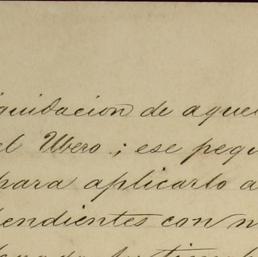 iquidacion de aque
el Ubero.; ese pequ
para aplicarlo a
endientes con m